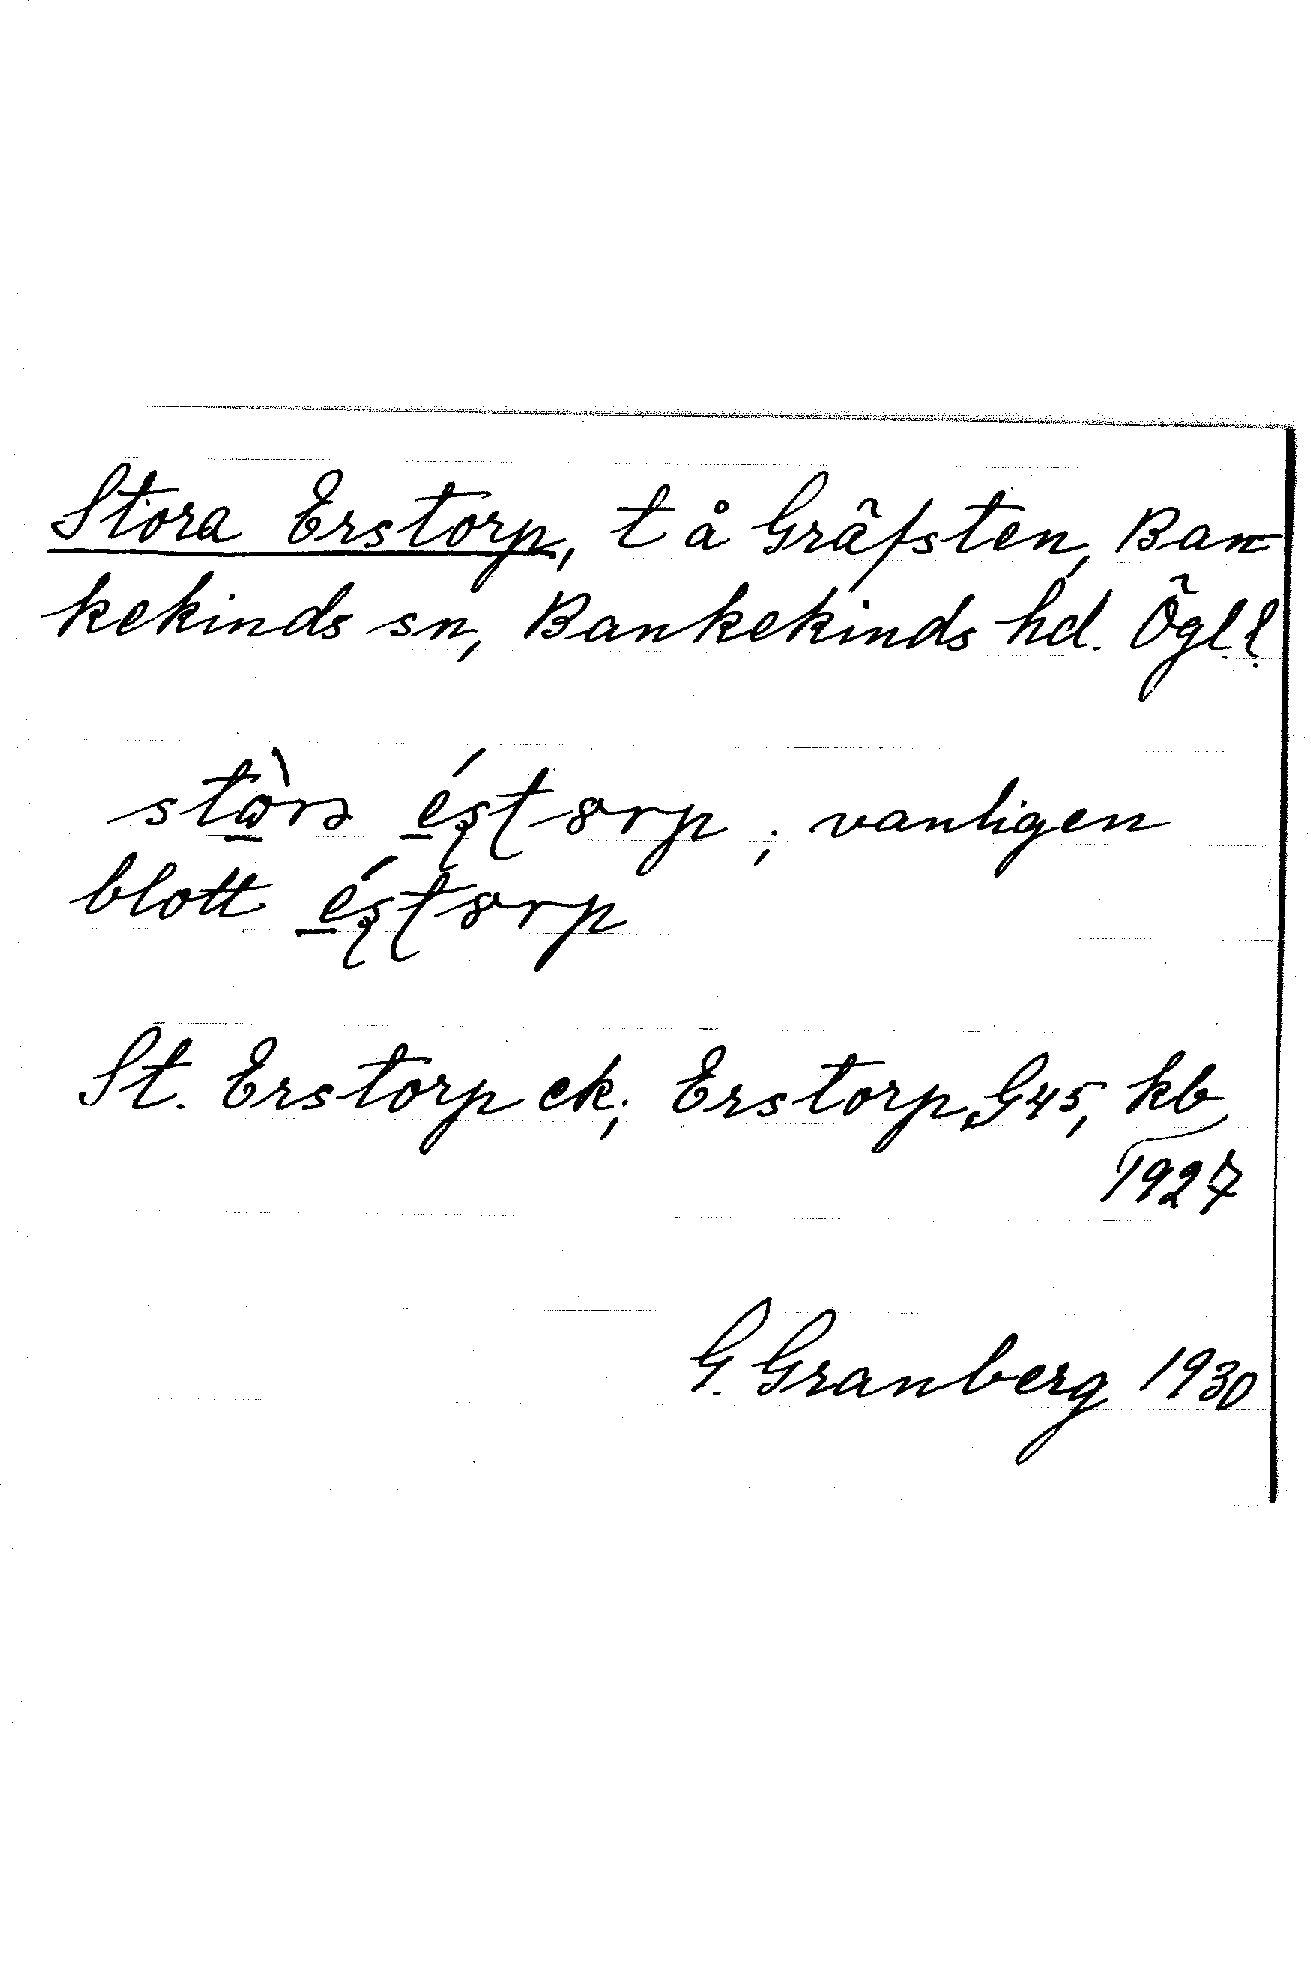 Stora Erstorp, t å Gräfsten, Ban-
kekinds sn, Bankekinds hd. Ögl.
stⱥ̀rɔ; vanligen
blott
St. Erstorp ek; Erstorp, G45, kb
1927
G. Granberg 1930